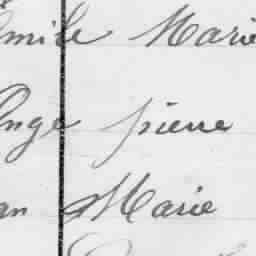 Emile Marie
Ange pierre
an Marie